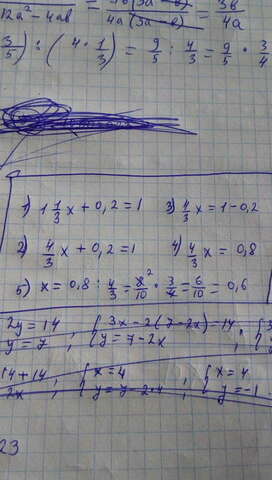 12a² - 4ab = 4a(3a - b) = 3b/4a
3/5) : (4 · 1/3) = 9/5 : 4/3 = 9/5 · 3/4
1) 1 1/3 x + 0,2 = 1 3) 4/3 x = 1 - 0,2
2) 4/3 x + 0,2 = 1 4) 4/3 x = 0,8
5) x = 0,8 : 4/3 = 8/10 · 3/4 = 6/10 = 0,6
2y = 14, { 3x - 2(7 - 2x) = 14, {3
y = 7 { y = 7 - 2x
14 + 14, { x = 4, { x = 4
2x { y = 7 - 2·4 { y = -1
23